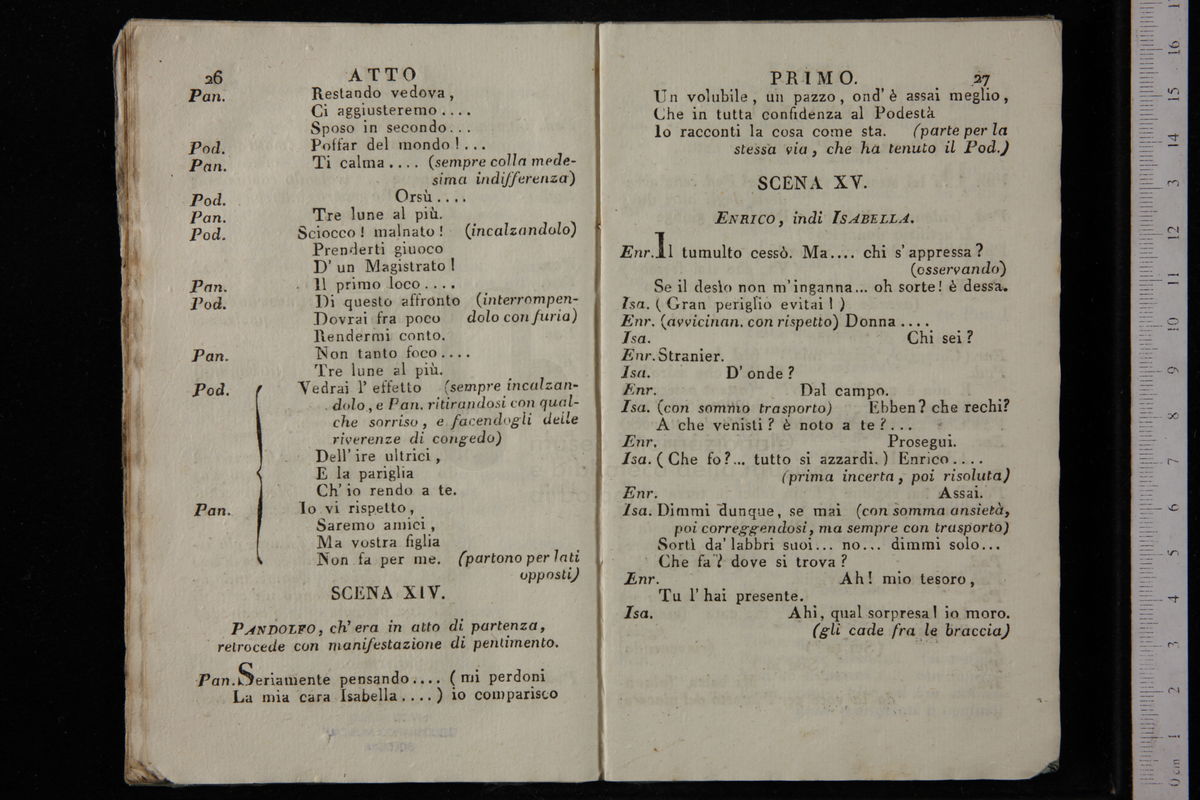 26 ATTO
Pan. Restando vedova,
Ci aggiusteremo....
Sposo in secondo...
Pod. Poffar del mondo!...
Pan. Ti calma.... (sempre colla mede-
sima indifferenza)
Pod. Orsù....
Pan. Tre lune al più.
Pod. Sciocco! malnato! (incalzandolo)
Prenderti giuoco
D' un Magistrato!
Pan. Il primo loco....
Pod. Di questo affronto (interrompen-
Dovrai fra poco dolo con furia)
Rendermi conto.
Pan. Non tanto foco....
Tre lune al più.
Pod. Vedrai l' effetto (sempre incalzan-
dolo, e Pan. ritirandosi con qual-
che sorriso, e facendogli delle
riverenze di congedo)
Dell' ire ultrici,
E la pariglia
Ch' io rendo a te.
Pan. Io vi rispetto,
Saremo amici,
Ma vostra figlia
Non fa per me. (partono per lati
opposti)
SCENA XIV.
PANDOLFO, ch' era in atto di partenza,
retrocede con manifestazione di pentimento.
Pan. Seriamente pensando.... (mi perdoni
La mia cara Isabella....) io comparisco
PRIMO. 27
Un volubile, un pazzo, ond' è assai meglio,
Che in tutta confidenza al Podestà
Io racconti la cosa come sta. (parte per la
stessa via, che ha tenuto il Pod.)
SCENA XV.
ENRICO, indi ISABELLA.
Enr. Il tumulto cessò. Ma.... chi s' appressa?
(osservando)
Se il desìo non m' inganna... oh sorte! è dessa.
Isa. (Gran periglio evitai!)
Enr. (avvicinan. con rispetto) Donna....
Isa. Chi sei?
Enr. Stranier.
Isa. D' onde?
Enr. Dal campo.
Isa. (con sommo trasporto) Ebben? che rechi?
A che venisti? è noto a te?...
Enr. Prosegui.
Isa. (Che fo?... tutto si azzardi.) Enrico....
(prima incerta, poi risoluta)
Enr. Assai.
Isa. Dimmi dunque, se mai (con somma ansietà,
poi correggendosi, ma sempre con trasporto)
Sortì da' labbri suoi... no... dimmi solo...
Che fa? dove si trova?
Enr. Ah! mio tesoro,
Tu l' hai presente.
Isa. Ahi, qual sorpresa! io moro.
(gli cade fra le braccia)